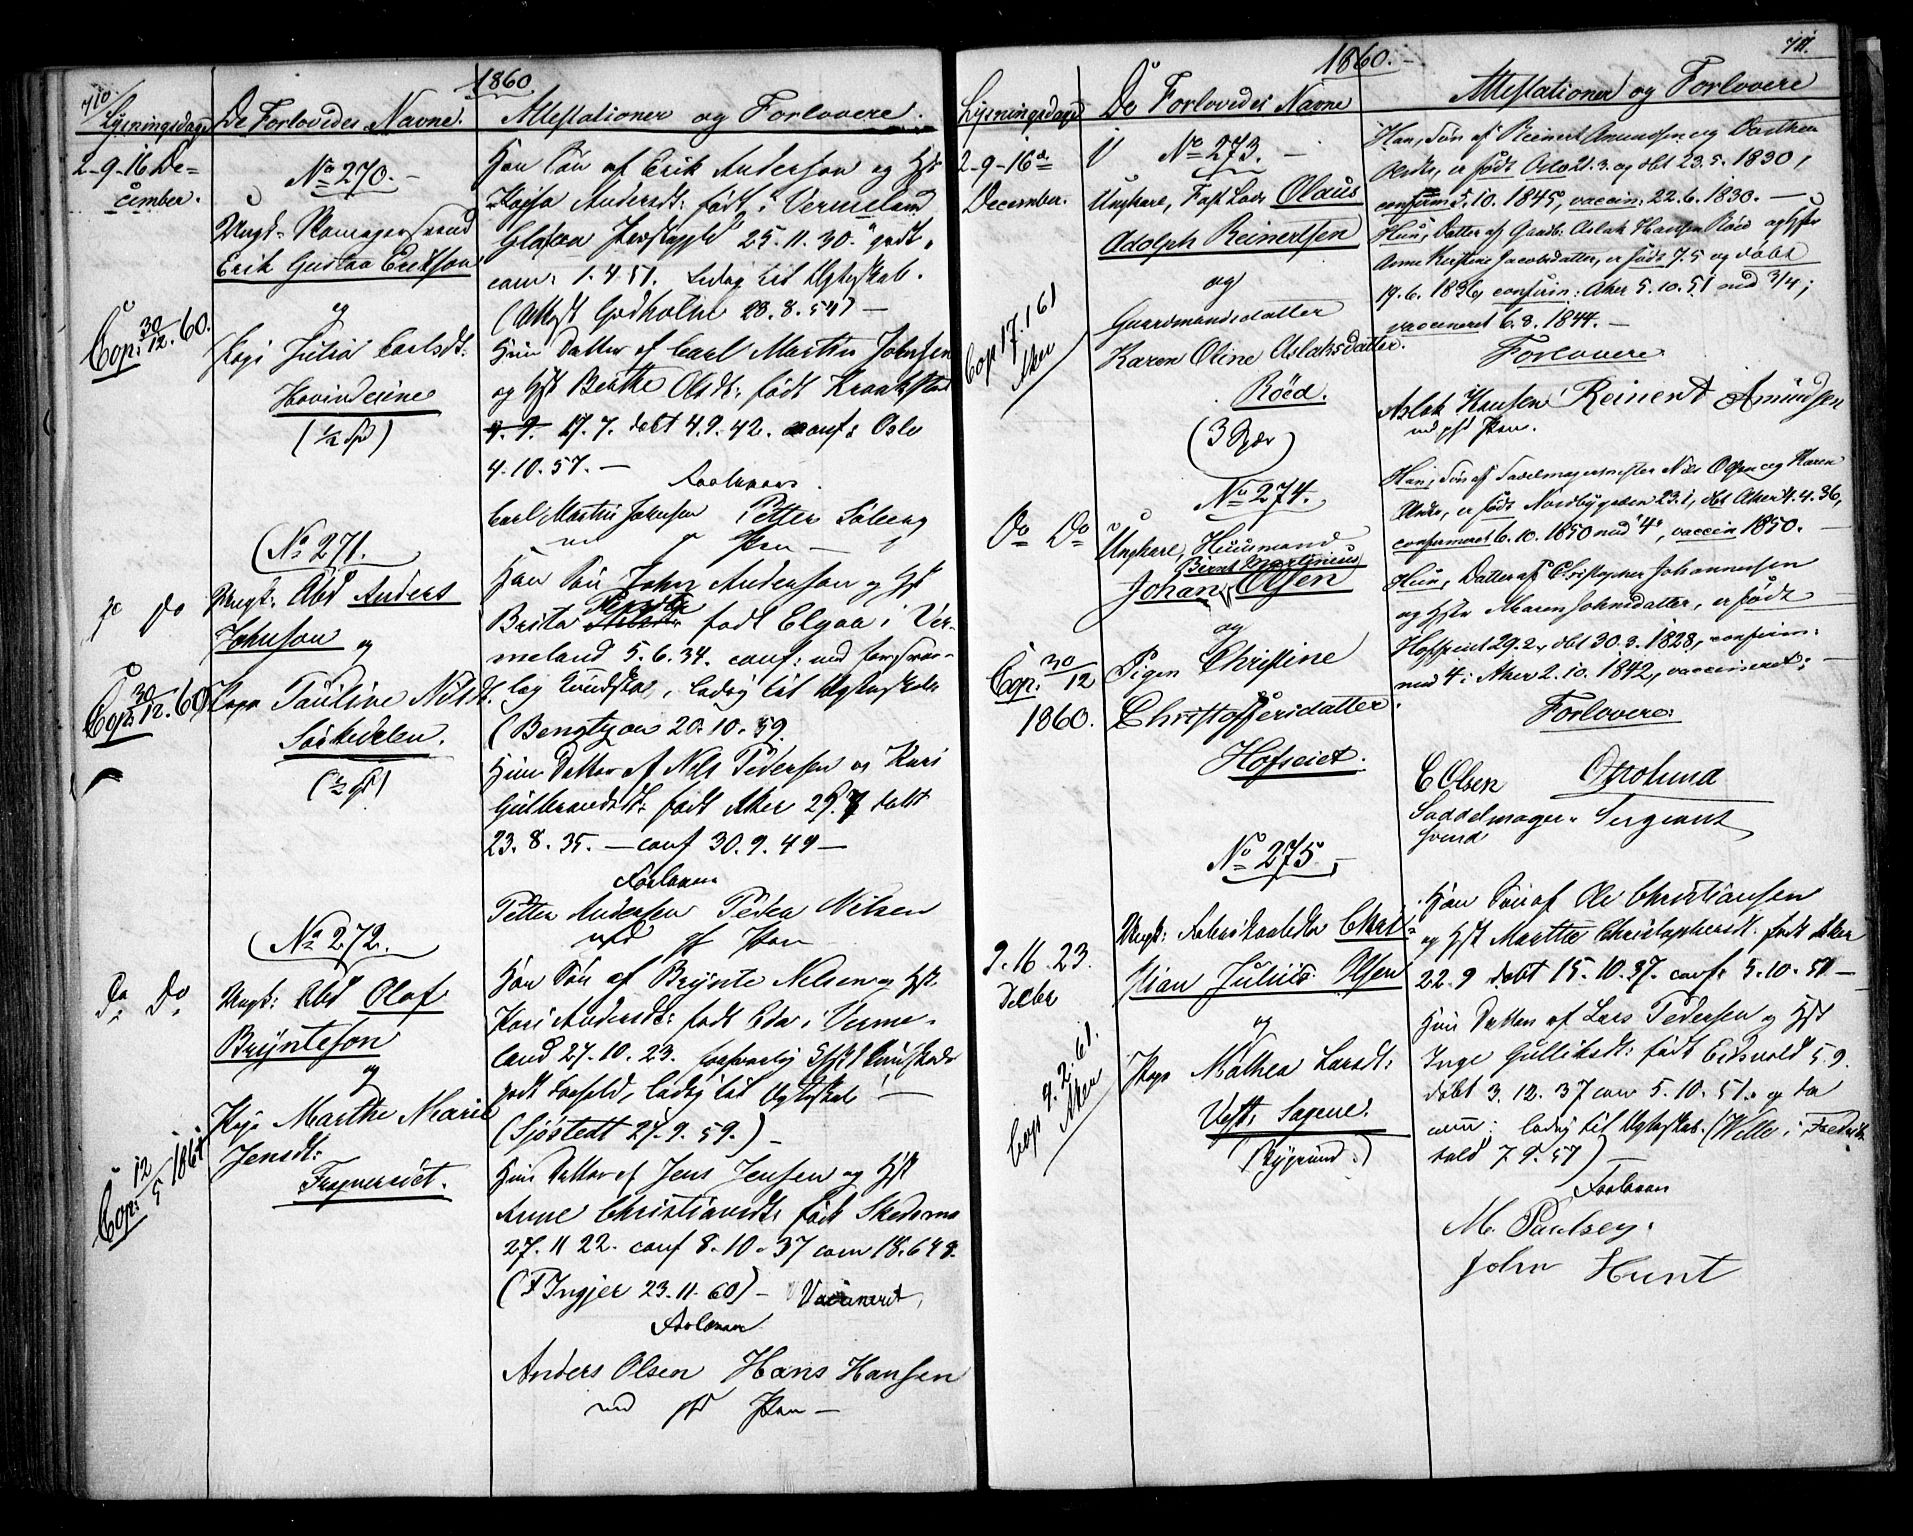 710.
1860
Lysningsdage De Forlovedes Navne. Attestationer og Forlovere.
2-9-16 De-
cember.
No 270.
Ungk.
Erik Gustav Erikson
og
Pige Julia Carlsdt:
Hovindenine
(½ Sp)
Cop: 30/12. 60.
Han Søn af Erik Anderson og Hst
Kajsa Andersdt: født i Vermeland
Glafva 25. 11. 30. godt
com: 1. 4. 51. Ledig til Ægteskab.
(Attest Godholm 28. 8. 54) —
Hun Datter af Carl Martin Johnsen
og Hst Berthe Olsdt: født Kraakstad
4. 9. 17. 7. døbt 4. 9. 42. conf: Oslo
4. 10. 57. —
Forlovere.
Carl Martin Johnsen Petter Solberg
m p Pen —
(No 271.
do Do
Ungk: Abd Anders
Johnson og
Pige Pauline Nilsdt.
Sørkedalen.
(½ Sp)
Cop: 30/12. 60
Han Søn John Anderson og Hst
Brita født Elgaa i Ver-
meland 5. 6. 34. conf: med forsvar-
lig Kundskab, ledig til Ægteskab
(Bengtzon 20. 10. 59.
Hun Datter af Nils Pedersen og Kari
Gulbrandsdt: født Aker 29. 7 døbt
23. 8. 35. — conf 30. 9. 49 —
Forlovere
Petter Andersen Peder Nilsen
med pf Pen —
(No 272.
Do Do
Ungk: Abd Olof
Brynteson
og
Pige Marthe Marie
Jensdt:
Frognerseiet.
Cop: 12/5 1861
Han Søn af Brynte Nelsen og Hst.
Kari Andersdt: født Eda i Verme-
land 27. 10. 23. forsvarlig Kundskab
godt Forhold, ledig til Ægteskab —
(Sjöstedt 27. 9. 59.) —
Hun Datter af Jens Jensen og Hst
Anne Christiansdt: født Skedsmo
27. 11 22. conf 8. 10. 37 com 18. 6 48.
(F Ingier 23. 11. 60) — Vaccineret,
Forlovere
Anders Olsen Hans Hansen
med pf Pen —
711.
1860.
Lysningsdage De Forlovedes Navne Attestationer og Forlovere
2-9-16de
December.
No 273. —
Ungkarl, Olaus
Adolph Reinertsen
og
Gaardmandsdatter
Karen Oline Aslaksdatter.
Røed.
(3 Spdr)
Cop 17. 1 61
Aker
Han, Søn af Reinert Amundsen og Dorthea
Andr, er født Oslo 21. 3. og dbt 23. 5. 1830,
confirm 5. 10. 1845, vaccin: 22. 6. 1830. —
Hun, Datter af Gaardb. Aslak Hansen Røed og Hstr
Anne Kirstine Jacobsdatter, er født 7. 5 og døbt
19. 6. 1836, confirm: Aker 5. 10. 51 med 3/4;
vaccineret 6. 8. 1844. —
Forlovere.
Aslak Hansen Reinert Amundsen
med pf Pen.
No 274.
Do Do
Ungkarl, Huusmand
Bernt Martinius
Johan Olsen
og
Pigen Christine
Christoffersdatter
Hofseiet.
Cop: 30/12
1860.
Han, Søn af Sadelmagermester Nils Olsen og Karen
Andr, er født Nordbygaden 23. 1, dbt Aker 4. 4. 36,
confirmeret 6. 10. 1850 med "4", vaccin 1850. —
Hun, Datter af Christopher Johannesen
og Hstr Maren Johnsdatter, er født
Hofseiet 29. 2., dbt 30. 3. 1828, confirm:
med 4 i Aker 2. 10. 1842, vaccineret. —
Forlovere:
C Olsen Otto Lund
Saddelmager- Sergeant
svend
No 275. —
9. 16. 23.
Decbr
Ungk: Chri-
stian Julius Olsen
og
Pige Mathea Larsdt:
Vestr. Sagene.
(Nygrund.)
Cop 9. 2. 61.
Aker
Han Søn af Ole Christiansen
og Hst Marthe Christophersdt. født Aker
22. 9 døbt 15. 10. 37. conf: 5. 10. 51 —
Hun Datter af Lars Pedersen og Hst
Inge Gulliksdt: født Eidsvold 5. 9.
døbt 3. 12. 37 com 5. 10. 51. og da
ledig til Ægteskab. (Wille i Fredriks
hald 7. 9. 57)
Forlovere
M. Paulsen.
John Hunt